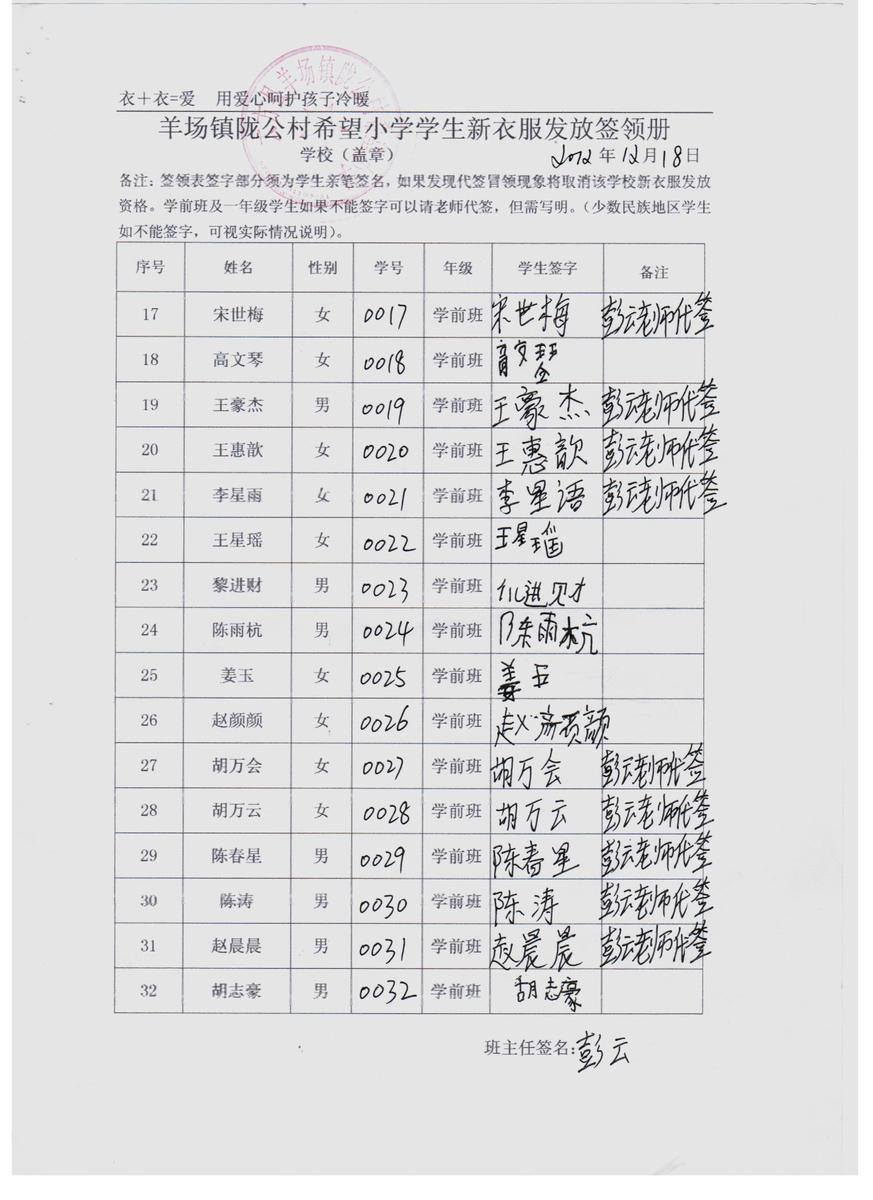 衣+衣=爱 用爱心呵护孩子冷暖
羊场镇陇公村希望小学学生新衣服发放签领册
学校（盖章） 2012年12月18日
备注：签领表签字部分须为学生亲笔签名，如果发现代签冒领现象将取消该学校新衣服发放
资格。学前班及一年级学生如果不能签字可以请老师代签，但需写明。（少数民族地区学生
如不能签字，可视实际情况说明）。
序号 姓名 性别 学号 年级 学生签字 备注
17 宋世梅 女 0017 学前班 宋世梅 彭云老师代签
18 高文琴 女 0018 学前班
19 王豪杰 男 0019 学前班 王豪杰 彭云老师代签
20 王惠歆 女 0020 学前班 王惠歆 彭云老师代签
21 李星雨 女 0021 学前班 李星语 彭云老师代签
22 王星瑶 女 0022 学前班 王星瑶
23 黎进财 男 0023 学前班 进财
24 陈雨杭 男 0024 学前班 陈雨杭
25 姜玉 女 0025 学前班 姜玉
26 赵颜颜 女 0026 学前班 赵颜颜
27 胡万会 女 0027 学前班 胡万会 彭云老师代签
28 胡万云 女 0028 学前班 胡万云 彭云老师代签
29 陈春星 男 0029 学前班 陈春星 彭云老师代签
30 陈涛 男 0030 学前班 陈涛 彭云老师代签
31 赵晨晨 男 0031 学前班 赵晨晨 彭云老师代签
32 胡志豪 男 0032 学前班 胡志豪
班主任签名：彭云